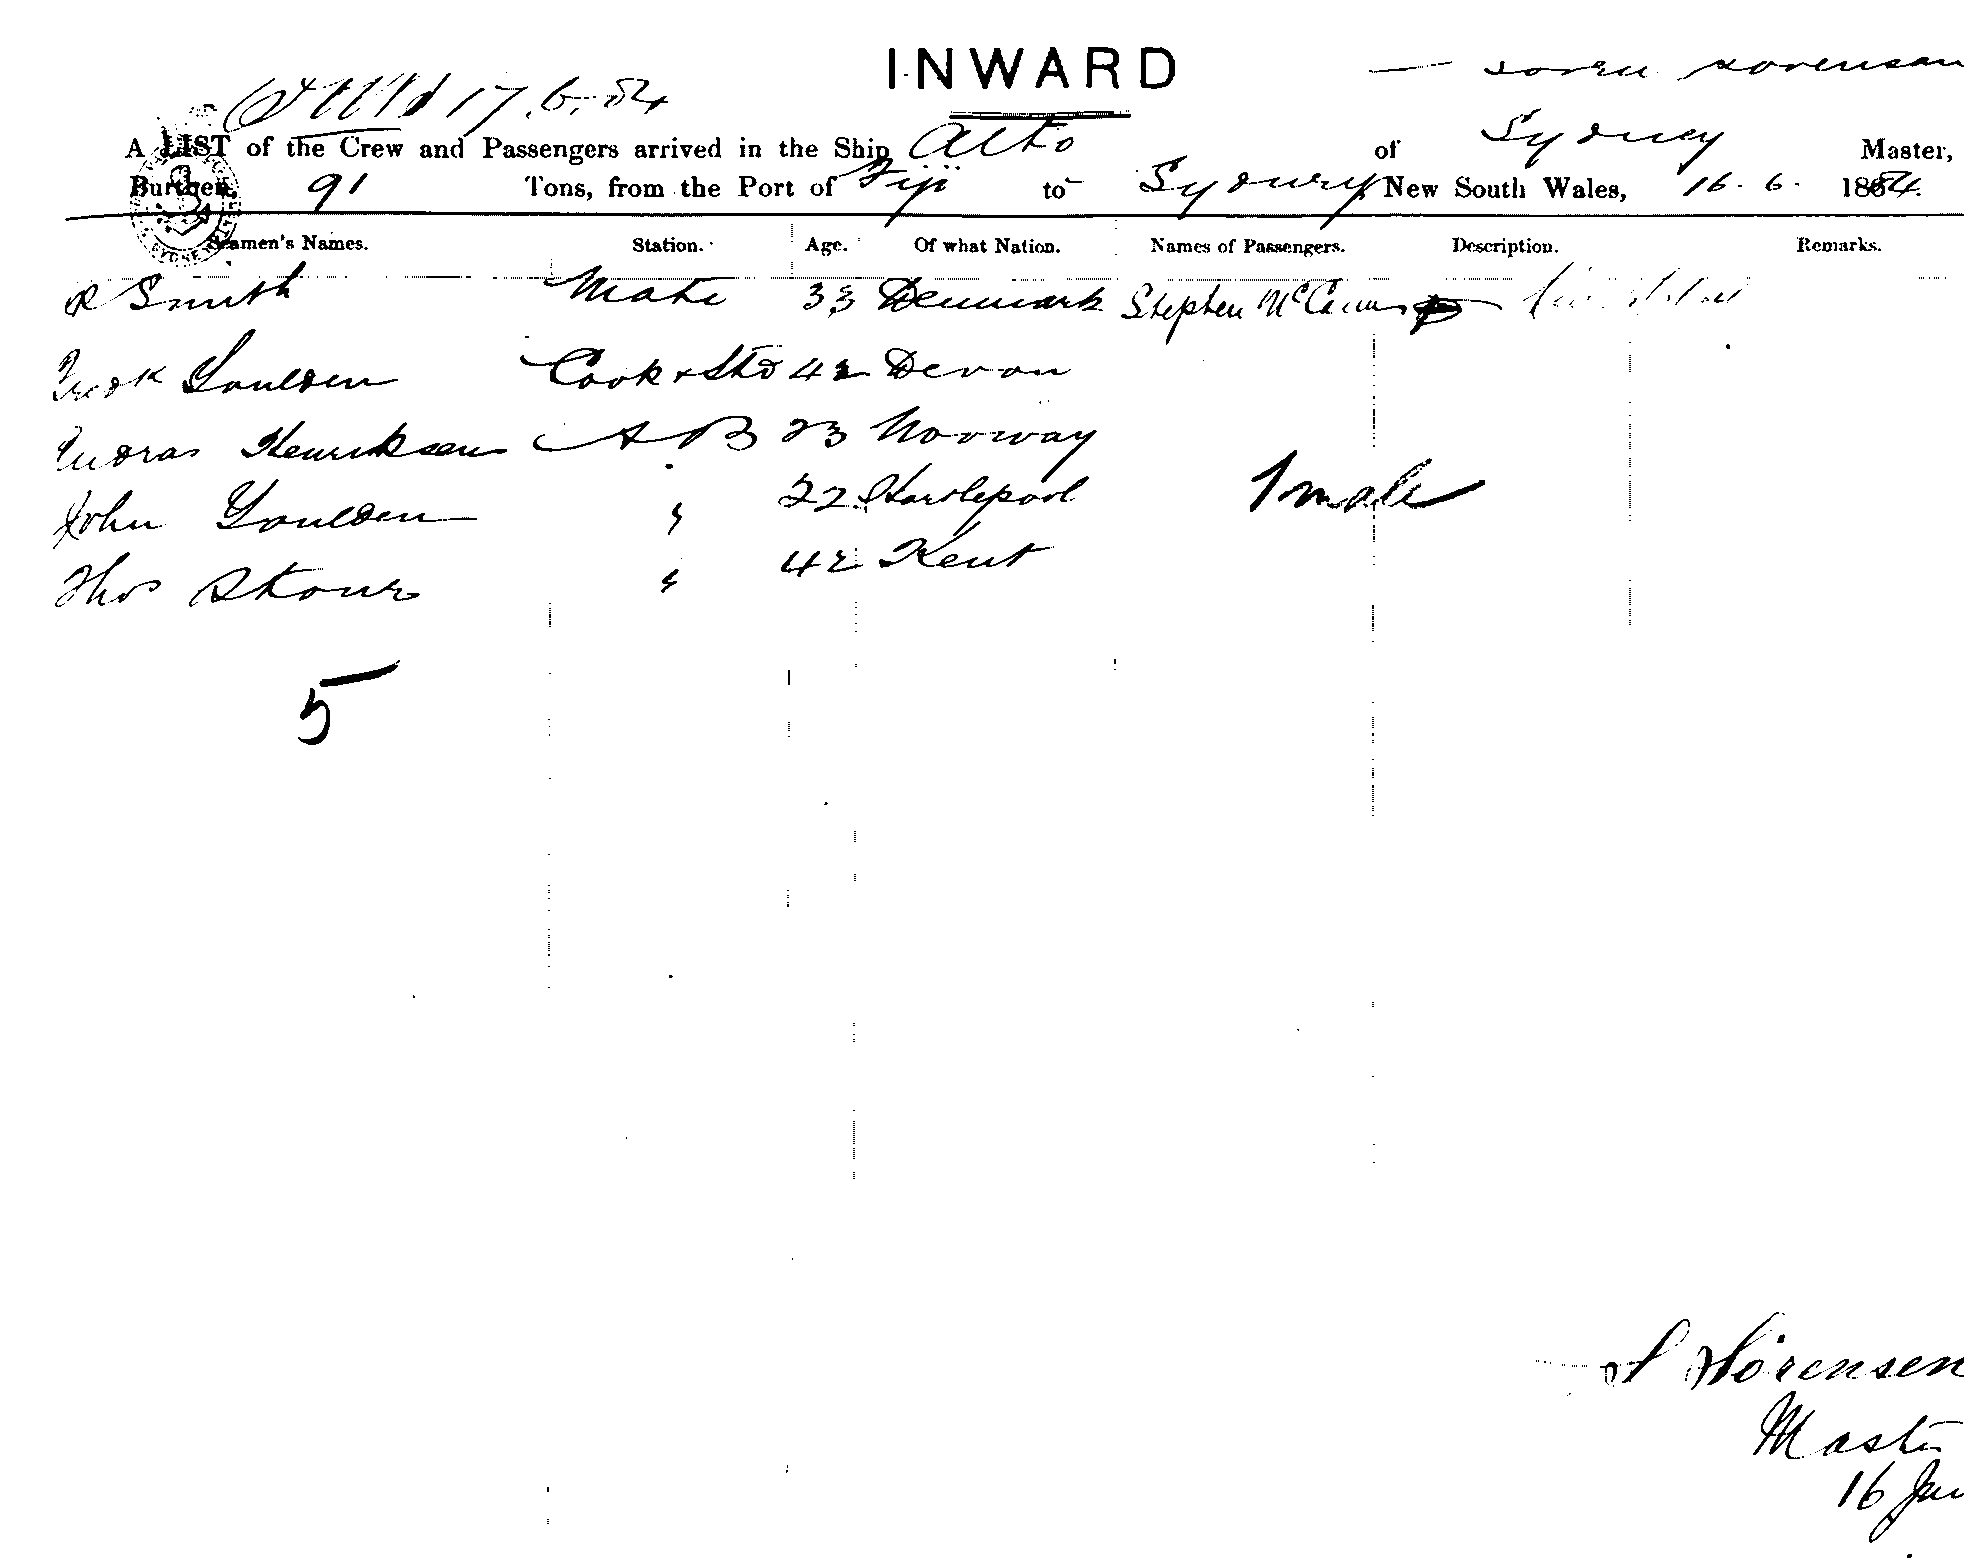 INWARD
— Soren Sorensen
17.6.84
A LIST of the Crew and Passengers arrived in the Ship Alto of Sydney Master,
Burthen, 91 Tons, from the Port of Fiji to Sydney New South Wales, 16.6. 1884.
Seamen's Names. Station. Age. Of what Nation. Names of Passengers. Description. Remarks.
R Smith Mate 33 Denmark Stephen
Fredk Youlden Cook & Std 42 Devon
Andras Henriksen A B 23 Norway
John Youlden " 22 Hartlepool 1 male
Thos " 42 Kent
5
S Sörensen
Master
16